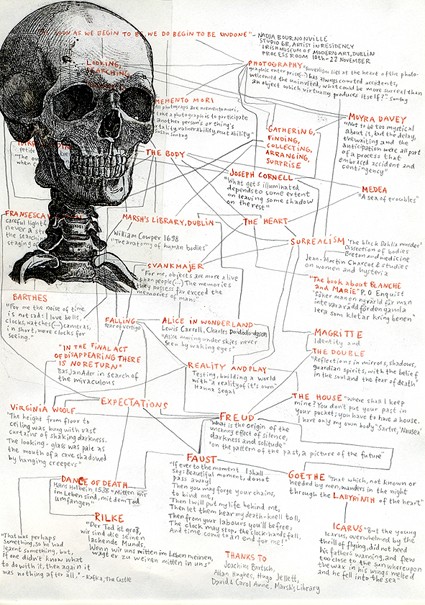 AS WE BEGIN TO BE, WE DO BEGIN TO BE UNDONE"
- NADIA BOURNONVILLE
STUDIO 6B, ARTIST IN RESIDENCY
IRISH MUSEUM OF MODERN ART, DUBLIN
PROCESS ROOM 10th-22 NOVEMBER
LOOKING,
SEARCHING
PHOTOGRAPHY
lies at the heart of the photo
graphic enterprise
has always courted accidents,
welcomed the uninvited, what could be more surreal than
an object which virtually produces itself?" Sontag
MEMENTO MORI
take a photograph is to participate
another person's or thing's
mortality, vulnerability, mutability
Sontag
GATHERING,
FINDING,
COLLECTING,
ARRANGING,
SURPRISE
MOYRA DAVEY
to be too mystical
about is, but the delay,
the waiting and the
anticipation were all part
of a process that
embraced accident and
contingency"
THE BODY
JOSEPH CORNELL
"What gets illuminated
depends to some extent
on leaving some shadow
on the rest"
MEDEA
"A sea of troubles"
FRANCESCA
MARSH'S LIBRARY, DUBLIN
THE HEART
William Cowper 1698
"The anatomy of human bodies"
SURREALISM
"The black Dahlia murder"
Dissection of bodies
Breton and medicine
Jean-Martin Charcot & studies
on women and hysteria
SVANKMAJER
"For me, objects are more alive
than people (...) The memories
they possess far exceed the
memories of man"
"The book about BLANCHE
and MARIE" P.O Enquist
BARTHES
"For me the noise of
time is not sad: I love bells,
clocks, watches (...) cameras,
in short, were clocks for
seeing"
FALLING
ALICE IN WONDERLAND
Lewis Carroll, Charles Dodgson
"Alice moving under skies never
seen by waking eyes"
MAGRITTE
Identity and
THE DOUBLE
"Reflections in mirrors, shadows,
guardian spirits, with the belief
in the soul and the fear of death"
"IN THE FINAL ACT
OF DISAPPEARING THERE
IS NO RETURN"
Bas Jan Ader in search of
the miraculous
REALITY AND PLAY
Testing, building a world
with "a reality of it's own"
Hanna Segal
THE HOUSE "where shall I keep
mine? You don't put your past in
your pocket; you have to have a house.
I have only my own body" Sartre, 'Nausea'
EXPECTATIONS
VIRGINIA WOOLF
"The height from floor to
ceiling was hung with vast
curtains of shaking darkness.
The looking-glass was pale as
the mouth of a cave shadowed
by hanging creepers"
FREUD
"What is the origin of the
uncanny effect of silence,
darkness and solitude"
"on the pattern of the past, a picture of the future"
FAUST
"If ever to the moment I shall
say: Beautiful moment, do not
pass away!
Then you may forge your chains,
to bind me,
Then I will put my life behind me,
Then let them hear my death-knell toll,
Then from your labours you'll be free,
The clock may stop, the clock-hands fall,
And time come to an end for me!"
GOETHE "That which, not known or
heeded by men, wanders in the night
through the LABYRINTH of the heart"
DANCE OF DEATH
Hans Holbein, 1538 "Mitten wir
im Leben sind, mit dem Tod
umfangen"
RILKE
"Der Tod ist groß,
wir sind die seinen
lachenden Munds.
Wenn wir uns mitten im Leben meinen,
wagt er zu weinen mitten in uns"
ICARUS "But the young
Icarus, overwhelmed by the
thrill of flying, did not heed
his father's warning, and flew
too close to the sun whereupon
the wax in his wings melted
and he fell into the sea"
"That was perhaps
something, so he had
learnt something, but
if one didn't know what
to do with it, then again it
was nothing after all," - Kafka, The Castle
THANKS TO
Joachim Bartsch,
Allan Hughes, Hugo Jellett,
David & Carol Anne, Marsh's Library